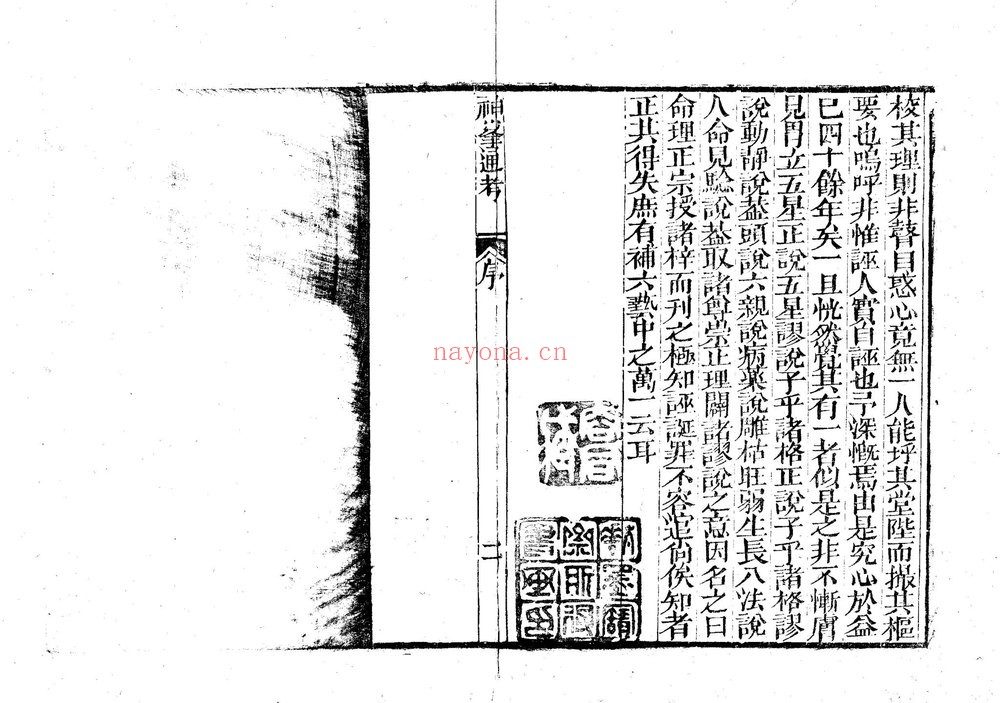 校其理則非瞽目惑心竟無一人能埒其堂陛而撮其樞
要也嗚呼非惟誣人實自誣也予深慨焉由是究心於益
巳四十餘年矣一旦恍然覺其有一者似是之非不慚膚
見冐立五星正說五星謬說子乎諸格正說子乎諸格謬
說動靜說葢頭說六親說病藥說雕枯旺弱生長八法說
人命見騐說葢取諸尊崇正理闢諸謬說之意因名之曰
命理正宗授諸梓而刊之極知誣誕罪不容逭尙俟知者
正其得失庶有補六藝中之萬一云耳
神峯通考
序
二
nayona.cn